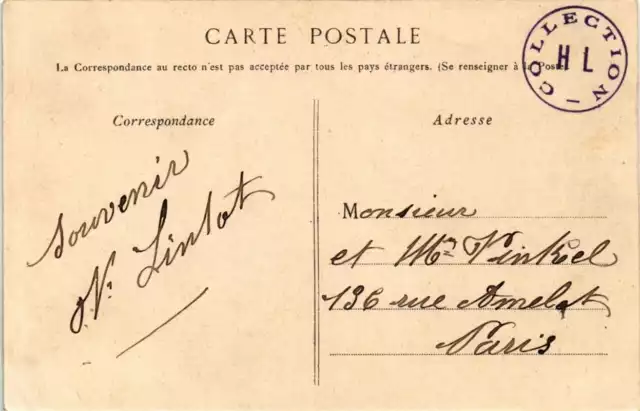 CARTE POSTALE
COLLECTION
H L
La Correspondance au recto n'est pas acceptée par tous les pays étrangers. (Se renseigner à la Poste).
Correspondance
Adresse
Souvenir
Lintot
Monsieur
et Mme Vinkel
136 rue Amelot
Paris